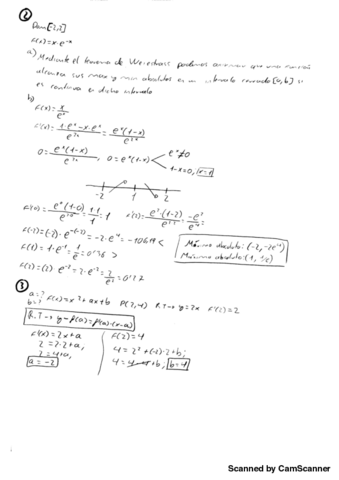 ②
Dom [-2,2]
f(x)= x·e^-x
a) Mediante el teorema de Weierstrass podemos que una función
alcanza sus max y min absolutos en un intervalo cerrado [a,b] si
es continua en dicho intervalo
b)
f(x)= x/e^x
f'(x)= (1·e^x - x·e^x)/e^2x = e^x(1-x)/e^2x
0= e^x(1-x)/e^2x , 0=e^x(1-x) e^x≠0
1-x=0, x=1
-2 1 2
f'(0)= e^0(1-0)/e^2·0 = 1·1/1 = 1 f'(2)= e^2(1-2)/e^2·2 = -e^2/e^4
f(-2)=(-2)·e^-(-2) = -2·e^2 =
f(1)= 1·e^-1 = 1/e = 0'36 >
Máximo absoluto: (1, 1/e)
f(2)=(2) e^-2 = 2·e^-2 = 2/e^2 = 0'27
③
a=? f(x)=x^2+ax+b R.T→ y=2x f'(2)=2
b=?
R.T→ y-f(a)=f'(a)·(x-a)
f'(x)= 2x+a f(2)=4
2 = 2·2+a; 4 = 2^2+(-2)·2+b;
2=4+a; b=4
a=-2
Scanned by CamScanner